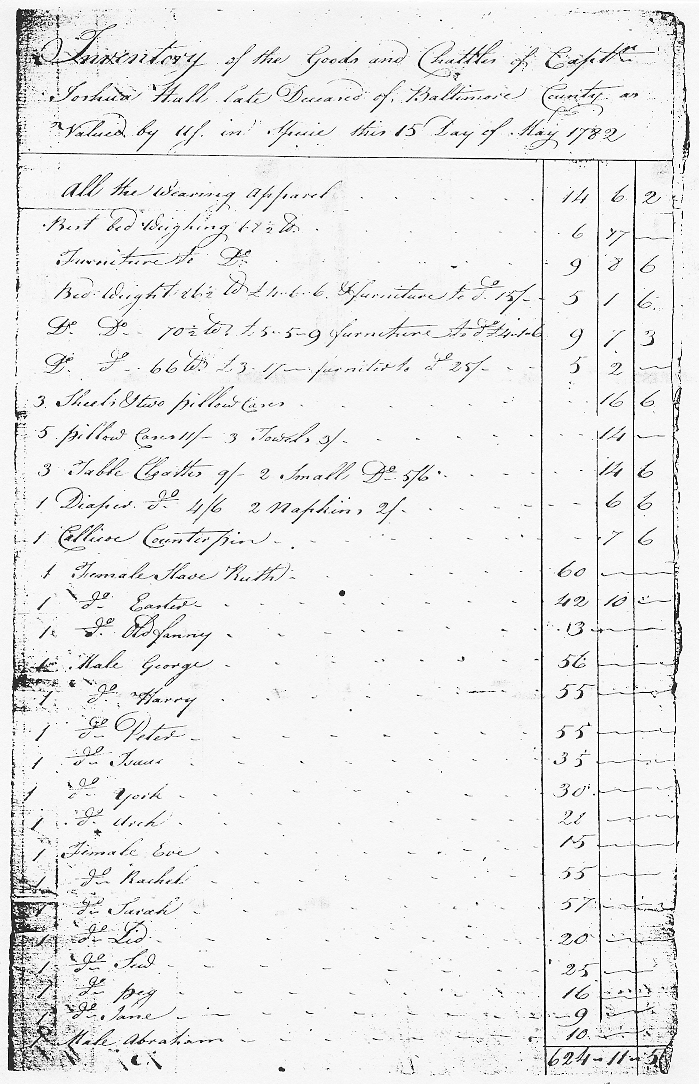 Inventory of the Goods and Chattles of Captn.
Joshua Hall late Deceased of Baltimore County as
Valued by us. in Specie this 15 Day of May 1782
All the wearing apparel 14 6 2
Best bed weighing 67½ lb 6 17 —
Furniture to Do. 9 8 6
Bed weight lb £4-6-6 & furniture to do. 15/- 5 1 6
Do. Do. 70½ lb £5-5-9 furniture to do. 9 7 3
Do. Do. 66 lb £3-17- furnitr to do. 25/- 5 2 —
3 Sheets & two pillow Cases 16 6
5 pillow Cases 11/- 3 Towels 3/- 14 —
3 Table Cloaths 9/- 2 Small Do. 5/6 14 6
1 Diaper do. 4/6 2 Napkins 2/- 6 6
1 Callicoe Counterpin 7 6
1 Female Slave Ruth 60 — —
1 do. Easter 42 10 —
1 do. Old fanny 13 — —
1 Male George 56 — —
1 do. Harry 55 — —
1 do. Peter 55 — —
1 do. Isaac 35 — —
1 do. York 30 — —
1 do. Arch — —
1 Female Eve 15 — —
1 do. Rachel 55 — —
1 do. Sarah 57 — —
1 do. Lid 20 — —
1 do. 25 — —
1 do. peg 16 — —
1 do. Jane 9 — —
1 Male Abraham 10 — —
624 - 11 - 5